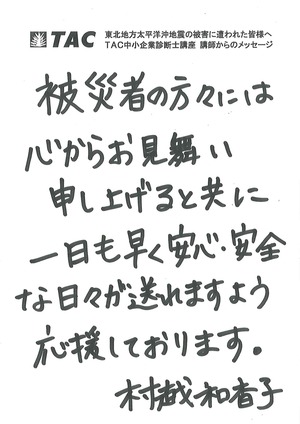 TAC
東北地方太平洋沖地震の被害に遭われた皆様へ
TAC中小企業診断士講座 講師からのメッセージ
被災者の方々には
心からお見舞い
申し上げると共に
一日も早く安心・安全
な日々が送れますよう
応援しております。
村越和香子